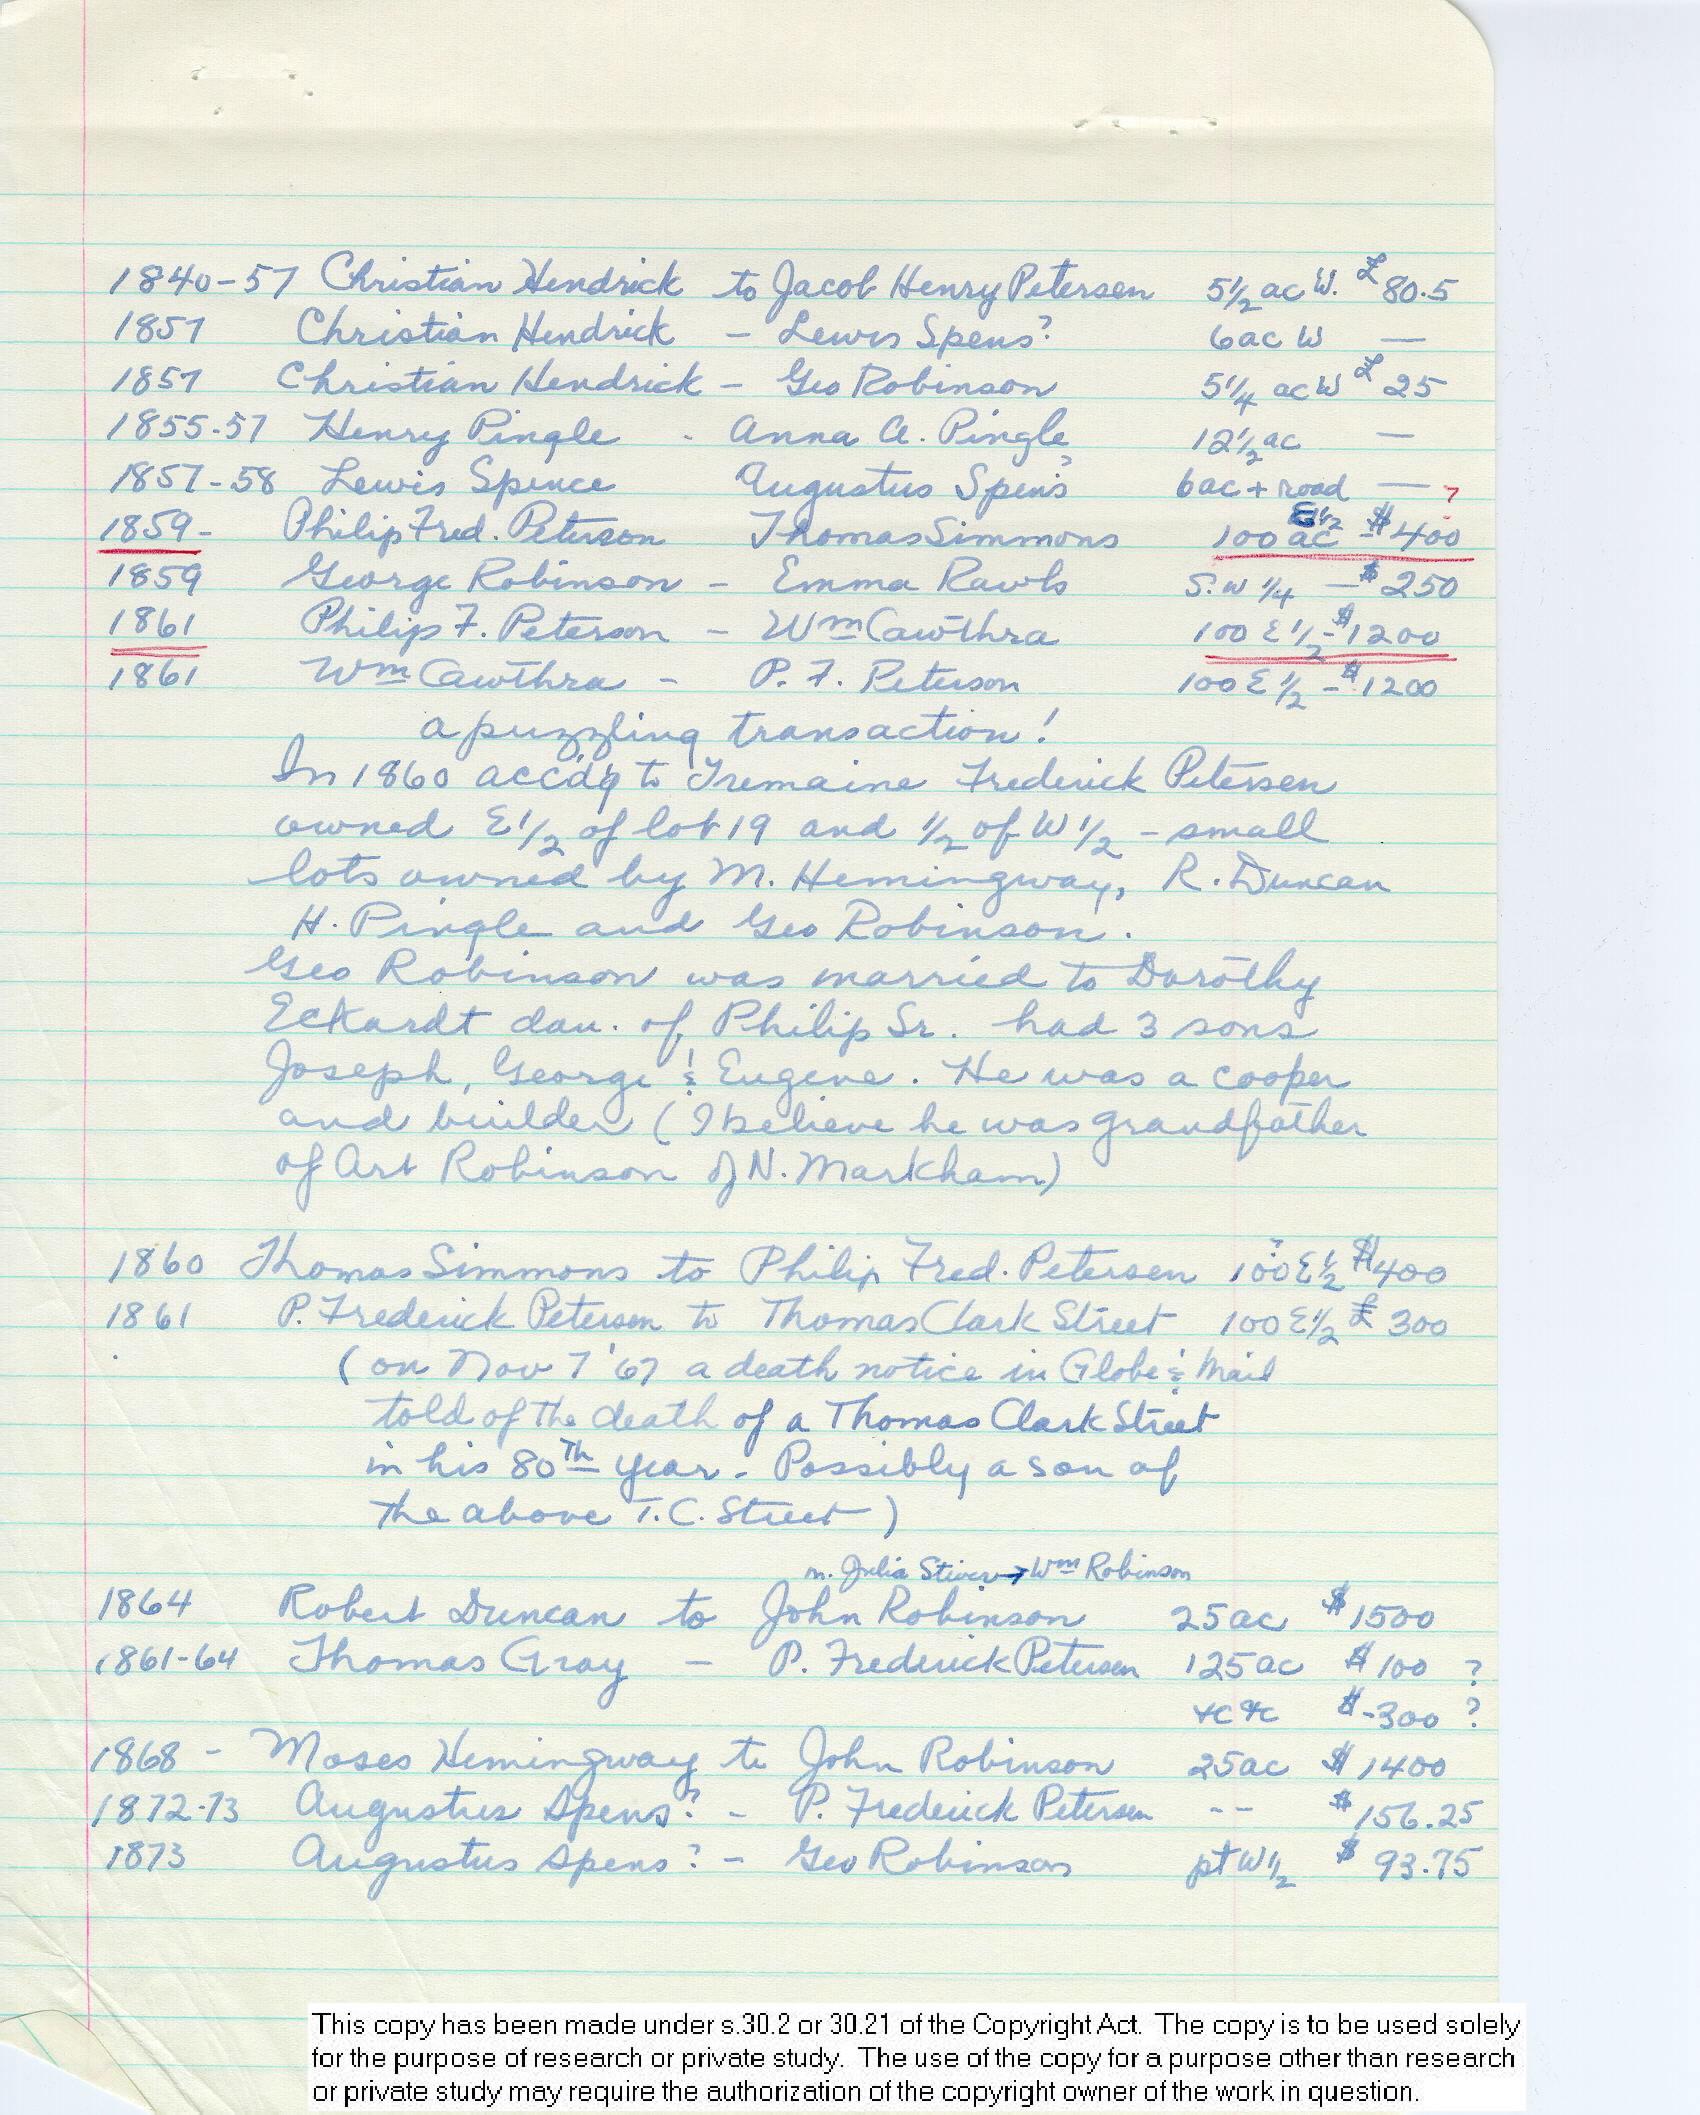 1840-57 Christian Hendrick to Jacob Henry Petersen 5 1/2 ac W. £80.5
1857 Christian Hendrick - Lewis Spens? 6ac W —
1857 Christian Hendrick - Geo Robinson 5 1/4 ac W £25
1855-57 Henry Pingle - Anna A. Pingle 12 1/2 ac —
1857-58 Lewis Spence Augustus Spens? 6ac + road — ?
1859- Philip Fred. Peterson Thomas Simmons 100 ac E 1/2 - $400
1859 George Robinson - Emma Rawls S.W 1/4 — $250
1861 Philip F. Peterson - Wm Cawthra 100 E 1/2 - $1200
1861 Wm Cawthra - P. F. Peterson 100 E 1/2 - $1200
a puzzling transaction!
In 1860 accd'g to Tremaine Frederick Petersen
owned E 1/2 of lot 19 and 1/2 of W 1/2 - small
lots owned by M. Hemingway, R. Duncan
H. Pingle and Geo Robinson.
Geo Robinson was married to Dorothy
Eckardt dau. of Philip Sr. had 3 sons
Joseph, George & Eugene. He was a cooper
and builder (I believe he was grandfather
of Art Robinson of N. Markham)
1860 Thomas Simmons to Philip Fred. Petersen 100? E 1/2 $400
1861 P. Frederick Petersen to Thomas Clark Street 100 E 1/2 £300
(on Nov 7 '67 a death notice in Globe & Mail
told of the death of a Thomas Clark Street
in his 80th year - Possibly a son of
the above T.C. Street)
m. Julia Stiver → Wm Robinson
1864 Robert Duncan to John Robinson 25ac $1500
1861-64 Thomas Gray - P. Frederick Petersen 125ac $100 ?
&c &c $-300 ?
1868 - Moses Hemingway to John Robinson 25ac $1400
1872-73 Augustus Spens? - P. Frederick Petersen -- $156.25
1873 Augustus Spens? - Geo Robinson pt W 1/2 $93.75
This copy has been made under s.30.2 or 30.21 of the Copyright Act. The copy is to be used solely
for the purpose of research or private study. The use of the copy for a purpose other than research
or private study may require the authorization of the copyright owner of the work in question.